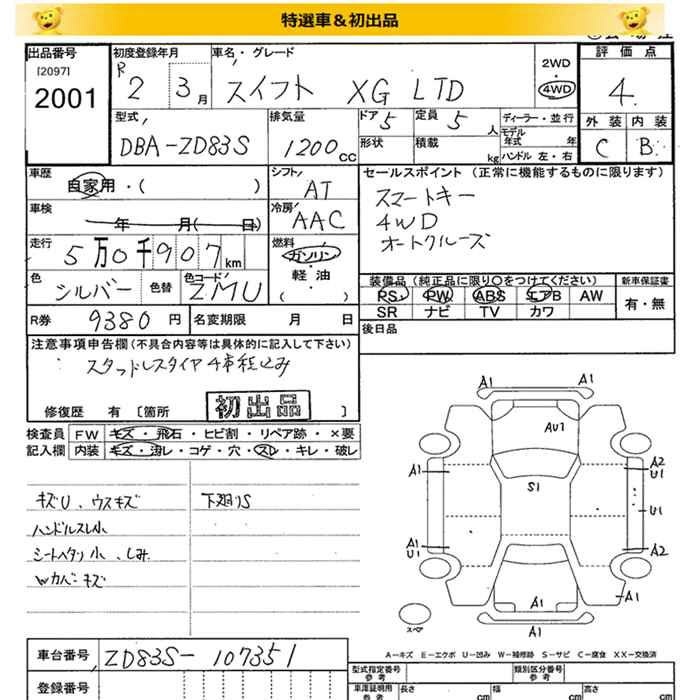 特選車＆初出品
出品番号
[2097]
2001
初度登録年月
R 2 3 月
車名・グレード
スイフト XG LTD
2WD
4WD
評価点
4
外装 内装
C B
型式
DBA-ZD83S
排気量
1200 cc
ドア 5
定員 5 人
ディーラー・並行
モデル年式 年
形状
積載 kg
ハンドル 左・右
車歴
自家用・( )
シフト
AT
セールスポイント (正常に機能するものに限ります)
スマートキー
4WD
オートクルーズ
車検
年 月( 日)
冷房
AAC
走行
5万0千907km
燃料
ガソリン
軽・油
( )
色
シルバー
色替
色コード
ZMU
装備品 (純正品に限り○をつけてください)
PS PW ABS エアB AW
SR ナビ TV カワ
新車保証書
有・無
R券 9380 円
名変期限 月 日
後日品
注意事項申告欄 (不具合内容等は具体的に記入して下さい)
スタッドレスタイヤ4本積込み
修復歴 有 [箇所 ]
初出品
検査員
記入欄
FW キズ・飛石・ヒビ割・リペア跡・×要
内装 キズ・汚レ・コゲ・穴・スレ・キレ・破レ
キズU、ウスキズ
下廻りS
ハンドルスレ小
シートヘタリ小、しみ
Wカバーキズ
A1 A1
AU1
A1
S1
A2
U1
U1
A1
U1
A2
A1
A1
A1
スペア
A－キズ E－エクボ U－凹み W－補修跡 S－サビ C－腐食 XX－交換済
車台番号 ZD83S-107351
登録番号
型式指定番号
参考
類別区分番号
参考
車庫証明用
参考
長さ cm
幅 cm
高さ cm